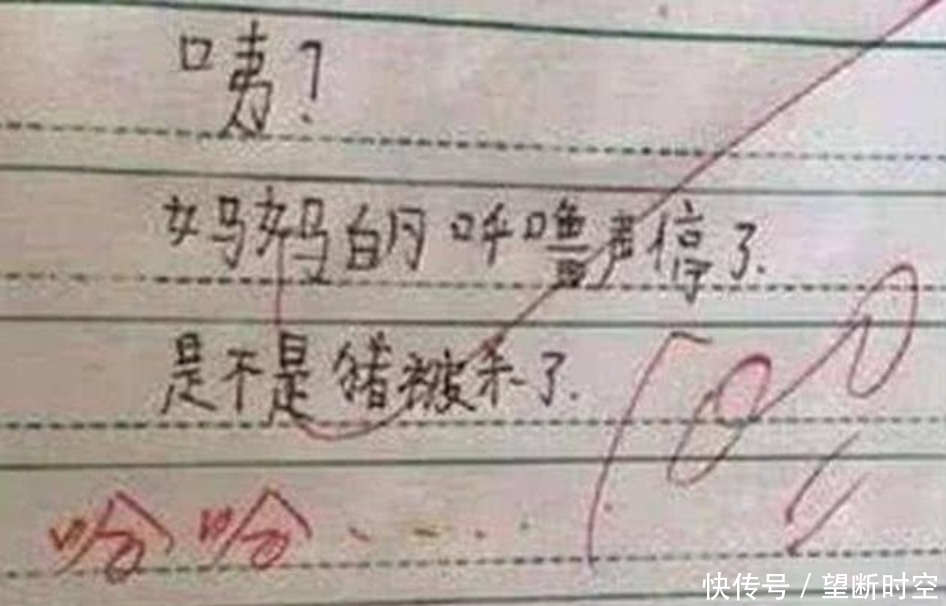 咦？
妈妈的呼噜声停了.
是不是猪被杀了.
哈哈....
100
快传号 / 望断时空